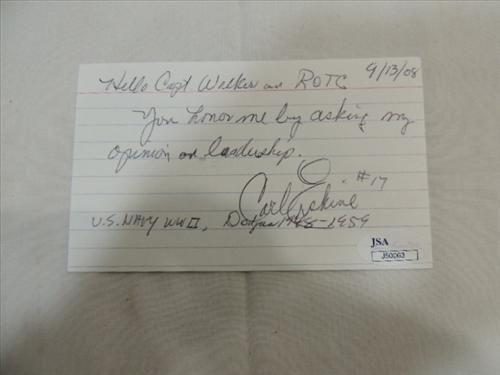 Hello Capt Walker and ROTC 9/13/08
You honor me by asking my
opinion on leadership.
Carl Erskine #17
U.S. NAVY WW II, Dodgers 1948-1959
JSA
J50063